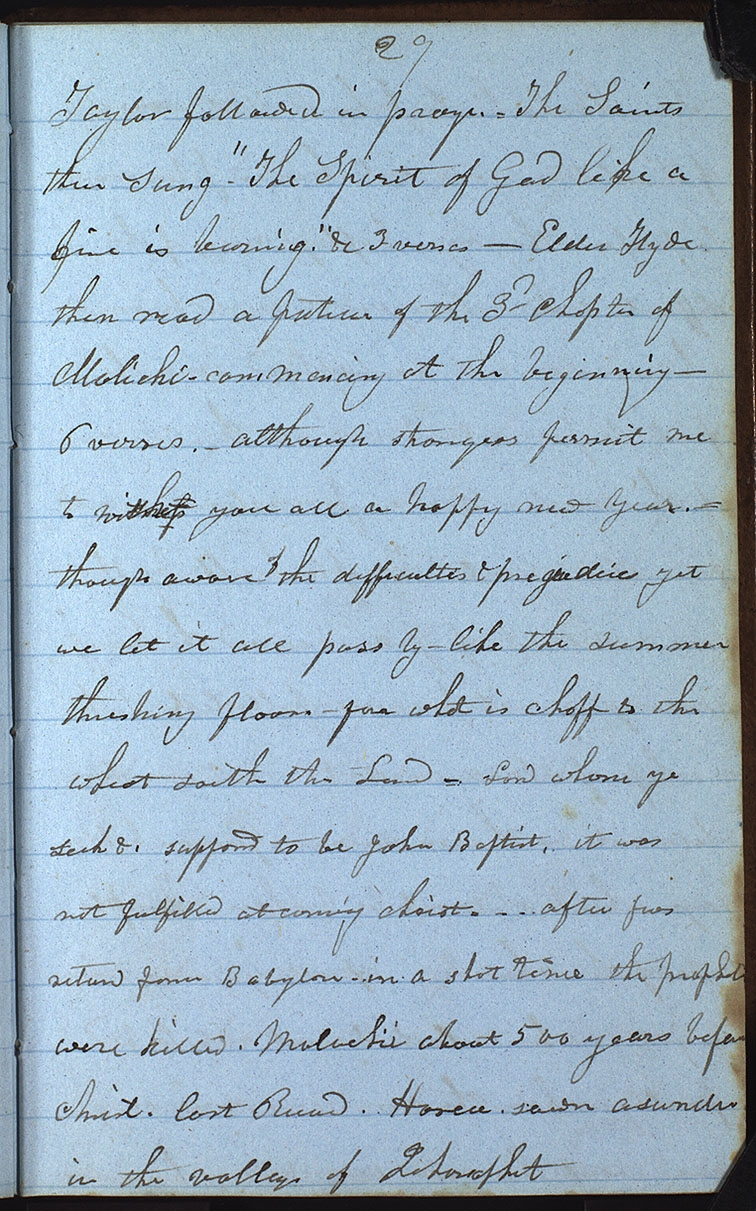 29
Taylor followed in prayr. = The Saints
then sung - "The Spirit of God like a
fire is burning." &c 3 verses — Elder Hyde
then read a portion of the 3d Chapter of
Malichi - commencing at the beginning —
6 verses. - although strangers permit me
to wish you all a happy new year. =
though aware of the difficulties & prejudice yet
we let it all pass by - like the summer
threshing floors - for what is chaff to the
wheat saith the Lord = Lord whom ye
seek &. supposd to be John Baptist, it was
not fulfilled at coming christ. - - after
return from Babylon - in a shot time the prophets
were killed. Malachi about 500 years before
Christ. last sawn asunder
in the valley of Jehosaphet